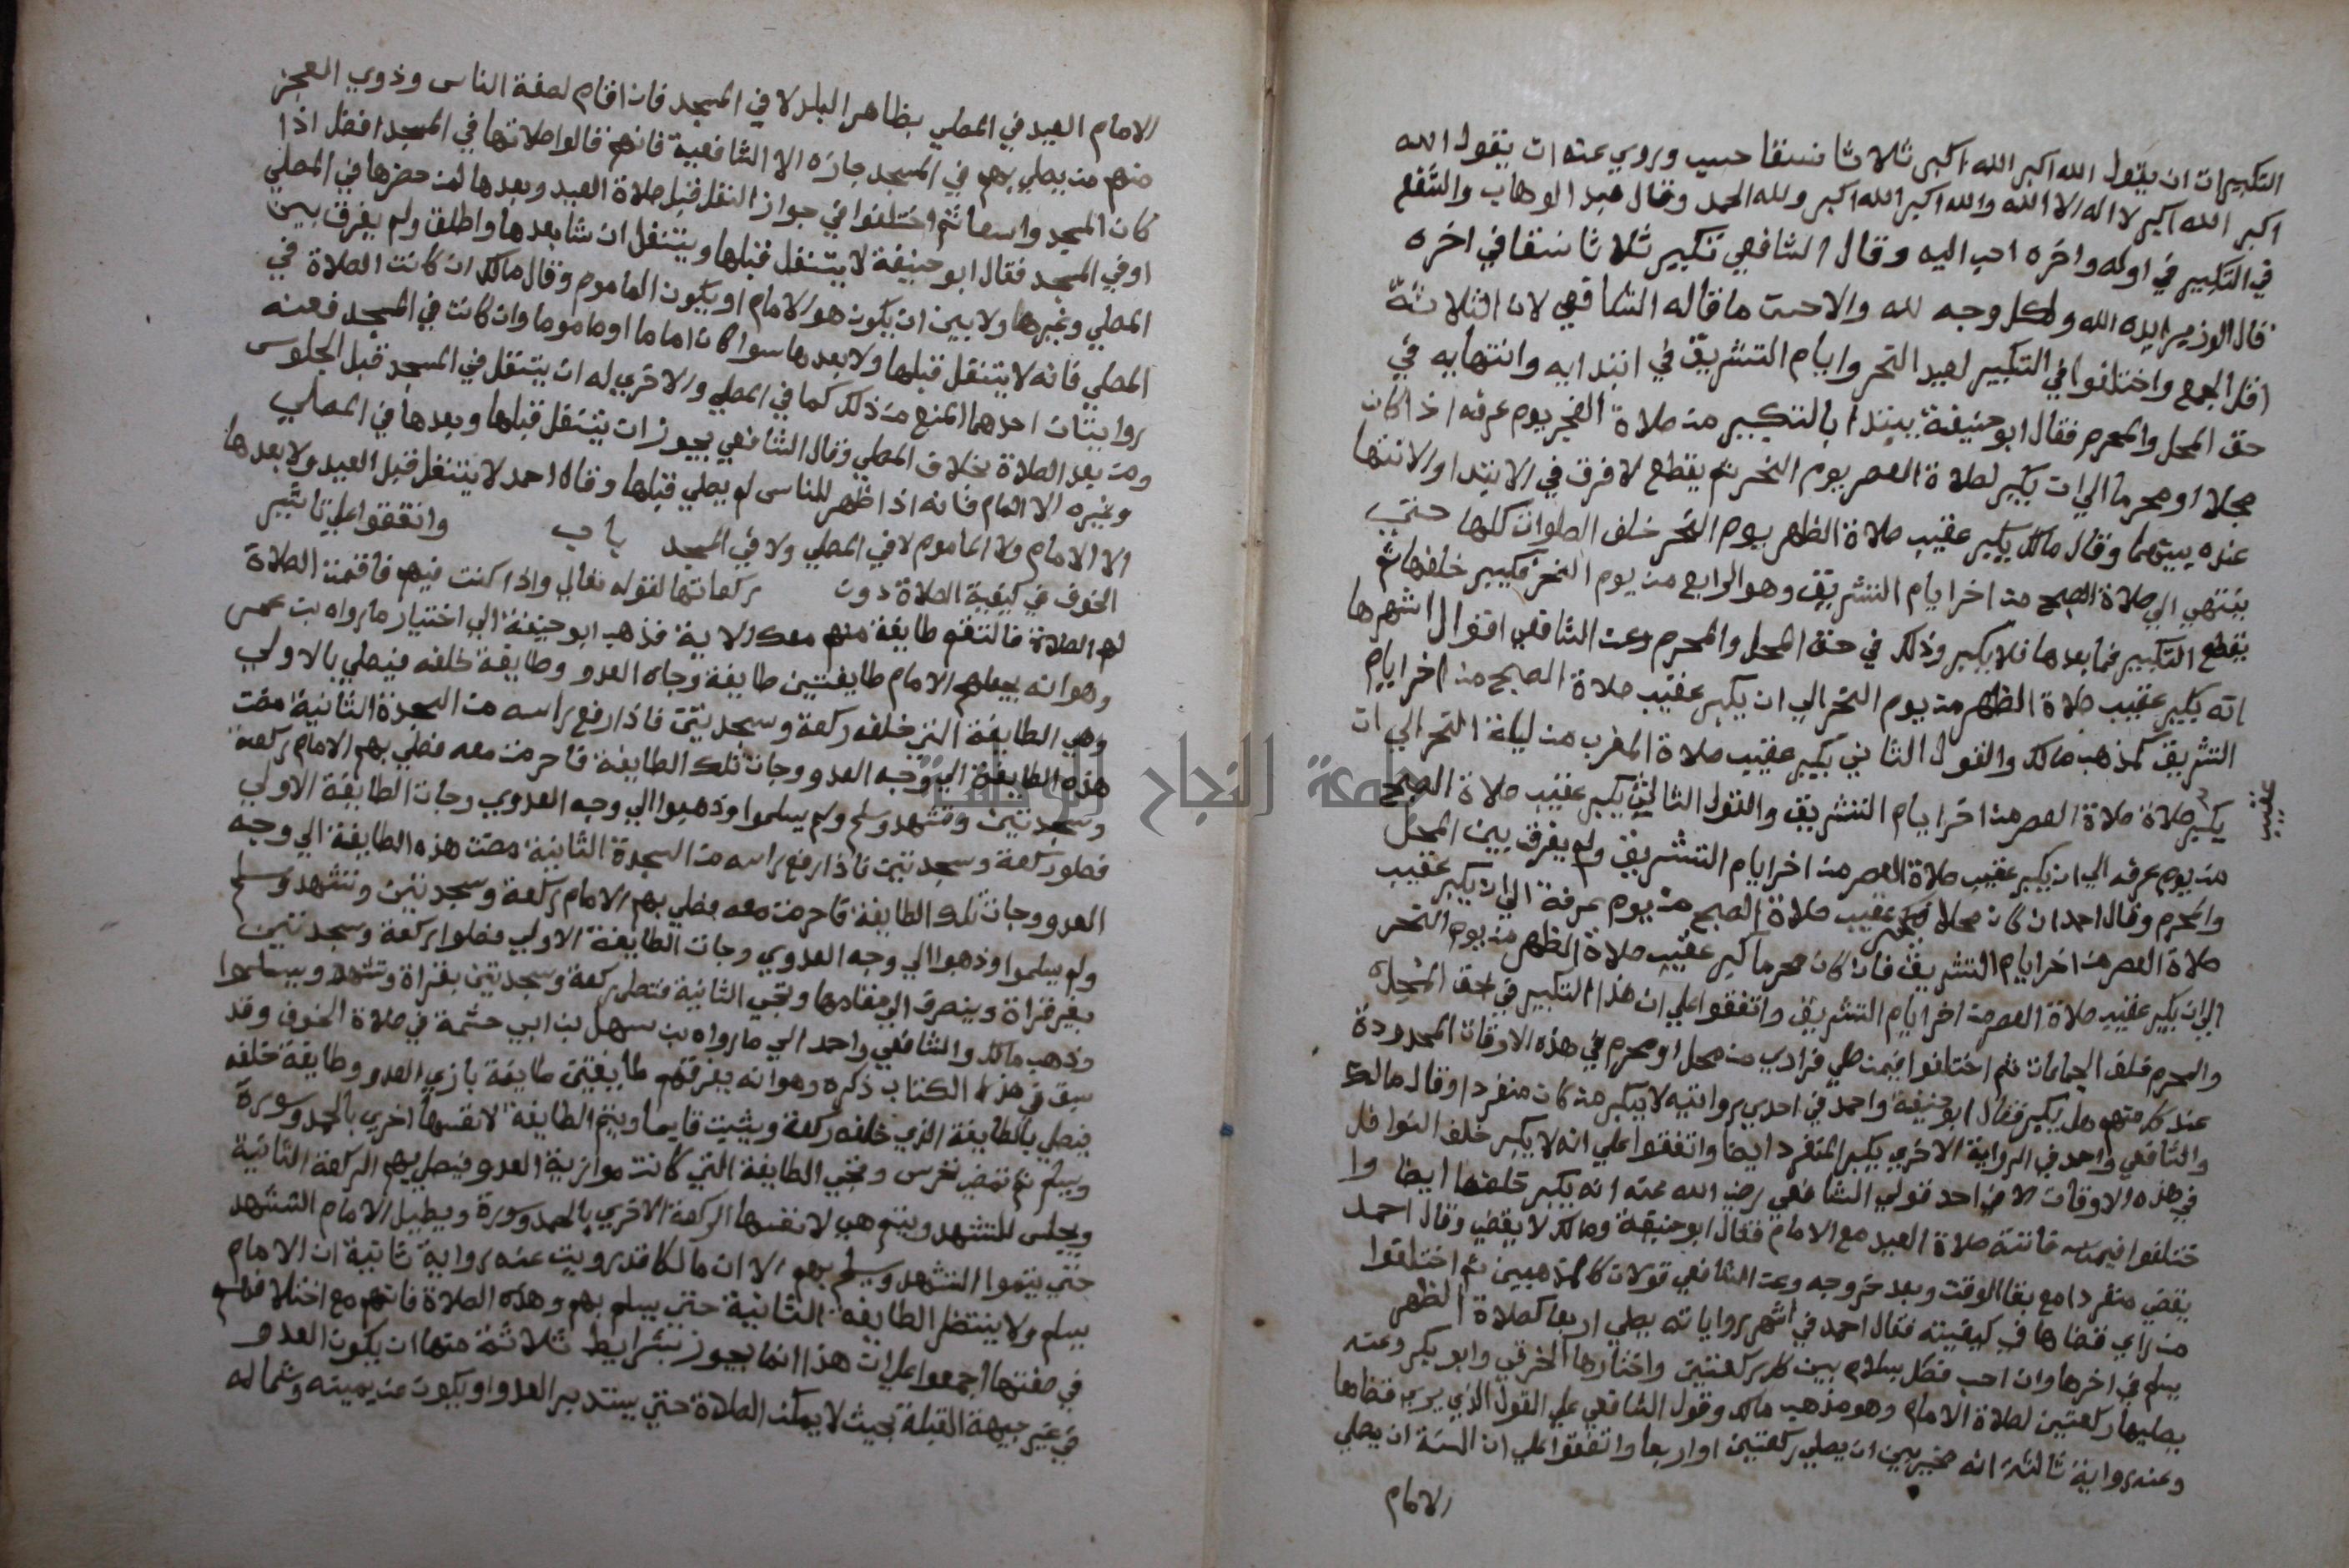 التكبيرات ان يقول الله اكبر الله اكبر ثلاثا نسقا حسب وروي عنه ان يقول الله
اكبر الله اكبر لا اله الا الله والله اكبر الله اكبر ولله الحمد وقال عبد الوهاب والشفع
في التكبير في اوله واخره احب اليه وقال الشافعي تكبير ثلاثا نسقا في اخره
قال الوزير ايده الله ولكل وجه لله والاحسن ما قاله الشافعي لان الثلاثة
اقل الجمع واختلفوا في التكبير لعيد النحر وايام التشريق في ابتدايه وانتهايه في
حق المحل والمحرم فقال ابو حنيفة يبتدا بالتكبير من صلاة الفجر يوم عرفه اذا كان
محلا او محرما الي ان يكبر لصلاة العصر يوم النحر ثم يقطع لا فرق في الابتدا والانتها
عنده بينهما وقال مالك يكبر عقيب صلاة الظهر يوم النحر خلف الصلوات كلها حتي
ينتهي الي صلاة الصبح من اخر ايام التشريق وهو الرابع من يوم النحر فكبير خلفها ثم
يقطع التكبير فما بعدها فلا يكبر وذلك في حق المحل والمحرم وعن الشافعي اقوال اشهرها
انه يكبر عقيب صلاة الظهر من يوم النحر الي ان يكبر عقيب صلاة الصبح من اخر ايام
التشريق كمذهب مالك والقول الثاني يكبر عقيب صلاة المغرب من ليلة النحر الي ان
يكبر صلاة صلاة العصر من اخر ايام التشريق والقول الثالث يكبر عقيب صلاة الصبح
عقيب
من يوم عرفه الي ان يكبر عقيب صلاة العصر من اخر ايام التشريق ولم يفرق بين المحل
والمحرم وقال احمد ان كان محلا فيكبر عقيب صلاة الصبح من يوم عرفة الي ان يكبر عقيب
صلاة العصر من اخر ايام التشريق فان كان محرما كبر عقيب صلاة الظهر من يوم النحر
الي ان يكبر عقيب صلاة العصر من اخر ايام التشريق واتفقوا علي ان هذا التكبير في حق المحل
والمحرم خلف الجماعات ثم اختلفوا فيمن صلي فرادي من محل او محرم في هذه الاوقات المحدودة
عند كل منهم هل يكبر فقال ابو حنيفة واحمد في احدي روايتيه لا يكبر من كان منفردا وقال مالك
والشافعي واحمد في الرواية الاخري يكبر المنفرد ايضا واتفقوا علي انه لا يكبر خلف النوافل
في هذه الاوقات الا في احد قولي الشافعي رضي الله عنه انه يكبر خلفها ايضا وا
ختلفوا فيمن فاتته صلاة العيد مع الامام فقال ابو حنيفة ومالك لا يقضي وقال احمد
يقضي منفردا مع بقا الوقت وبعد خروجه وعن الشافعي قولان كالمذهبين ثم اختلفوا
من راي قضاها في كيفيته فقال احمد في اشهر رواياته يصلي اربعا كصلاة الظهر
يسلم في اخرها وان احب فصل بسلام بين كل ركعتين واختارها الخرقي وابو بكر وعنه
يصليها ركعتين لصلاة الامام وهو مذهب مالك وقول الشافعي علي القول الذي يري قضاها
وعنه رواية ثالثة انه مخير بين ان يصلي ركعتين او اربعا واتفقوا علي ان السنة ان يصلي
الامام
الامام العيد في المصلي بظاهر البلد لا في المسجد فان اقام لضعفة الناس وذوي العجز
منهم من يصلي بهم في المسجد جازه الا الشافعية فانهم قالوا صلاتها في المسجد افضل اذا
كان المسجد واسعا ثم اختلفوا في جواز النفل قبل صلاة العيد وبعدها لمن حضرها في المصلي
او في المسجد فقال ابو حنيفة لا يتنفل قبلها ويتنفل ان شا بعدها واطلق ولم يفرق بين
المصلي وغيرها ولا بين ان يكون هو الامام او يكون الماموم وقال مالك ان كانت الصلاة في
المصلي فانه لا يتنفل قبلها ولا بعدها سوا كان اماما او ماموما وان كانت في المسجد فعنه
روايتان احدهما المنع من ذلك كما في المصلي والاخري له ان يتنفل في المسجد قبل الجلوس
ومن بعد الصلاة بخلاف المصلي وقال الشافعي يجوز ان يتنفل قبلها وبعدها في المصلي
وغيره الا الامام فانه اذا ظهر للناس لم يصلي قبلها وقال احمد لا يتنفل قبل العيد ولا بعدها
الا الامام ولا الماموم لا في المصلي ولا في المسجد باب واتفقوا علي تاثير
الخوف في كيفية الصلاة دون ركعاتها لقوله تعالي واذا كنت فيهم فاقمت الصلاة
لهم الصلاة فالتقم طايفة منهم معك الاية فذهب ابو حنيفة الي اختيار ما رواه بن عمر
وهو انه يجعلهم الامام طايفتين طايفة وجاه العدو وطايفة خلفه فيصلي بالاولي
وهي الطايفة التي خلفه ركعة وسجدتين فاذا رفع راسه من السجدة الثانية مضت
هذه الطايفة الي وجه العدو وجات تلك الطايفة فاحرمت معه فصلي بهم الامام ركعة
وسجدتين وتشهد وسلم ولم يسلموا وذهبوا الي وجه العدوي وجات الطايفة الاولي
فصلو ركعة وسجدتين فاذا رفع راسه من السجدة الثانية مضت هذه الطايفة الي وجه
العدو وجات تلك الطايفة فاحرمت معه فصلي بهم الامام ركعة وسجدتين وتشهد وسلم
ولم يسلموا وذهبوا الي وجه العدوي وجات الطايفة الاولي فصلوا ركعة وسجدتين
بغير قراة وينصرف الي مقامها وتجي الثانية فتصلي ركعة وسجدتين بقراة وتشهد ويسلموا
وذهب مالك والشافعي واحمد الي ما رواه بن سهل بن ابي حثمة في صلاة الخوف وقد
سبق في هذا الكتاب ذكره وهو انه يفرقهم طايفتين طايفة بازي العدو وطايفة خلفه
فيصلي بالطايفة الذي خلفه ركعة ويثبت قايما ويتم الطايفة لانفسها اخري بالحمد وسورة
ويسلم ثم تمضي تحرس وتجي الطايفة التي كانت موازية العدو فيصلي بهم الركعة الثانية
ويجلس للتشهد ويتم هي لانفسها الركعة الاخري بالحمد وسورة ويطيل الامام التشهد
حتي يتموا التشهد ويسلم بهم الا ان مالكا قد رويت عنه رواية ثانية ان الامام
يسلم ولا ينتظر الطايفة الثانية حتي يسلم بهم وهذه الصلاة فانهم مع اختلافهم
في صفتها اجمعوا علي ان هذا انما يجوز بشرايط ثلاثة منها ان يكون العدو
في غير جهة القبلة بحيث لا يمكن الصلاة حتي يستدبر العدو او يكون عن يمينه وشماله
جامعة النجاح الوطنية